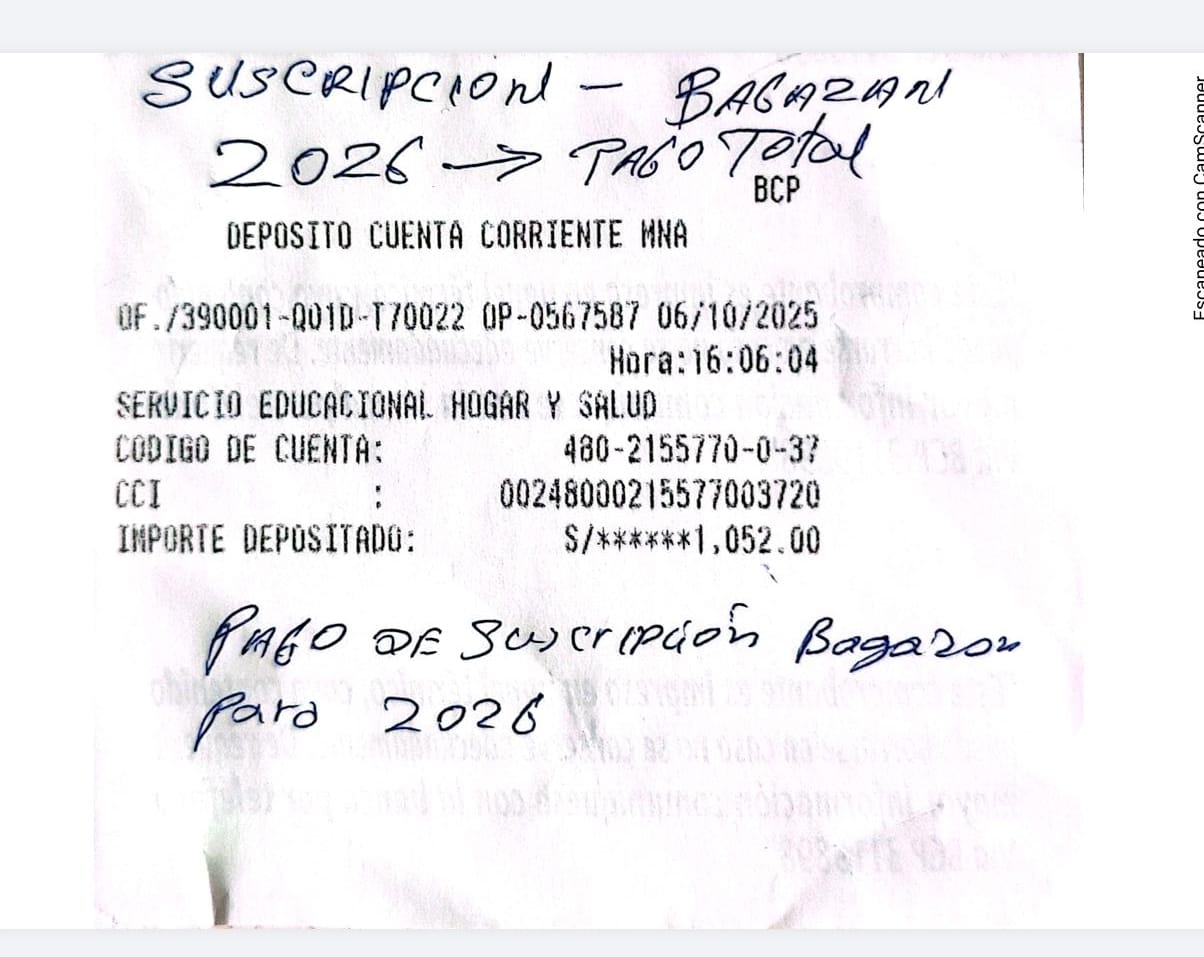 SUSCRIPCION - BAGAZAN
2026 → PAGO Total
BCP
DEPOSITO CUENTA CORRIENTE MNA
OF./390001-Q01D-T70022 OP-0567587 06/10/2025
Hora:16:06:04
SERVICIO EDUCACIONAL HOGAR Y SALUD
CODIGO DE CUENTA: 480-2155770-0-37
CCI : 00248000215577003720
IMPORTE DEPOSITADO: S/******1,052.00
PAGO DE Suscripción Bagazan
para 2026
Escaneado con CamScanner